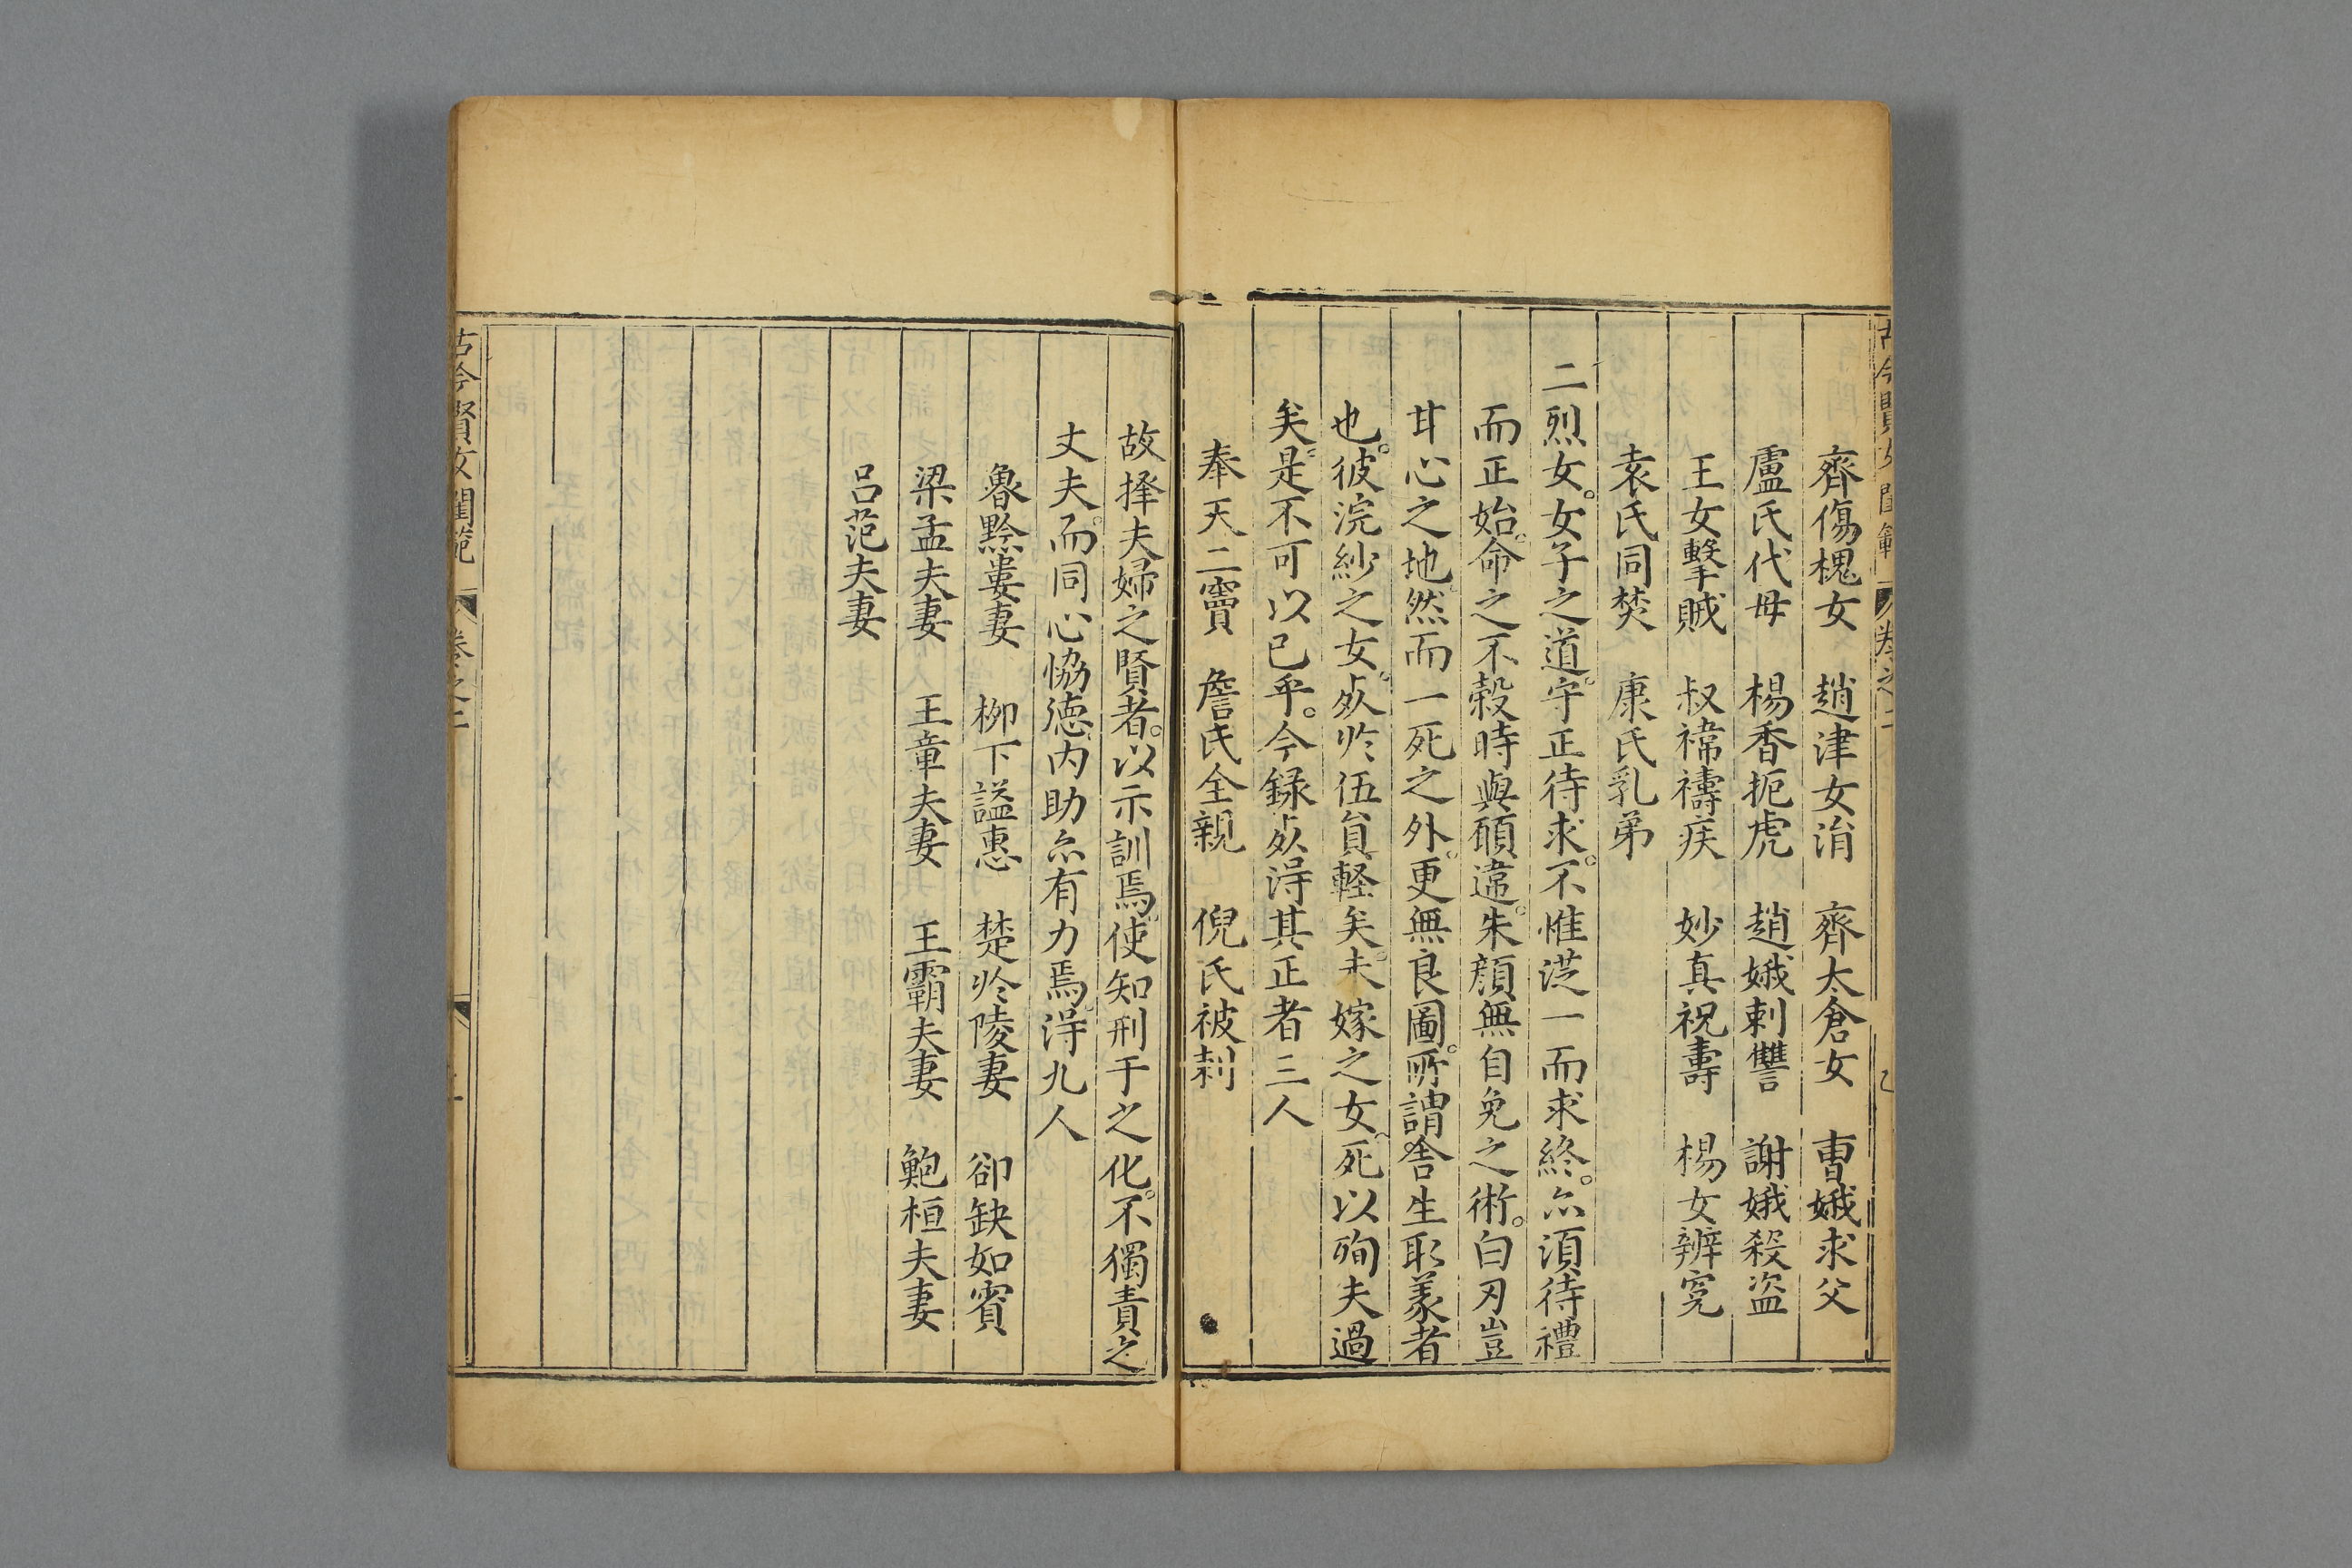 古今賢女閨範 卷之二
齊傷槐女 趙津女涓 齊太倉女 曹娥求父
盧氏代母 楊香扼虎 趙娥刺讐 謝娥殺盜
王女擊賊 叔褘禱疾 妙真祝壽 楊女辨寃
袁氏同焚 康氏乳弟
二烈女。女子之道。守正待求。不惟從一而求終。亦須待禮
而正始。命之不榖時與願違。朱顏無自免之術。白刃豈
甘心之地。然而一死之外。更無良圖。所謂舍生取義者
也。彼浣紗之女。死於伍員輕矣。未嫁之女。死以殉夫過
矣。是不可以已乎。今録死得其正者三人
奉天二竇 詹氏全親 倪氏被刺
故择夫婦之賢者。以示訓焉。使知刑于之化。不獨責之
丈夫。而同心恊德。内助亦有力焉。得九人
魯黔婁妻 栁下謚惠 楚於陵妻 卻缺如賓
梁孟夫妻 王章夫妻 王霸夫妻 鮑桓夫妻
呂范夫妻
古今賢女閨範 卷之二